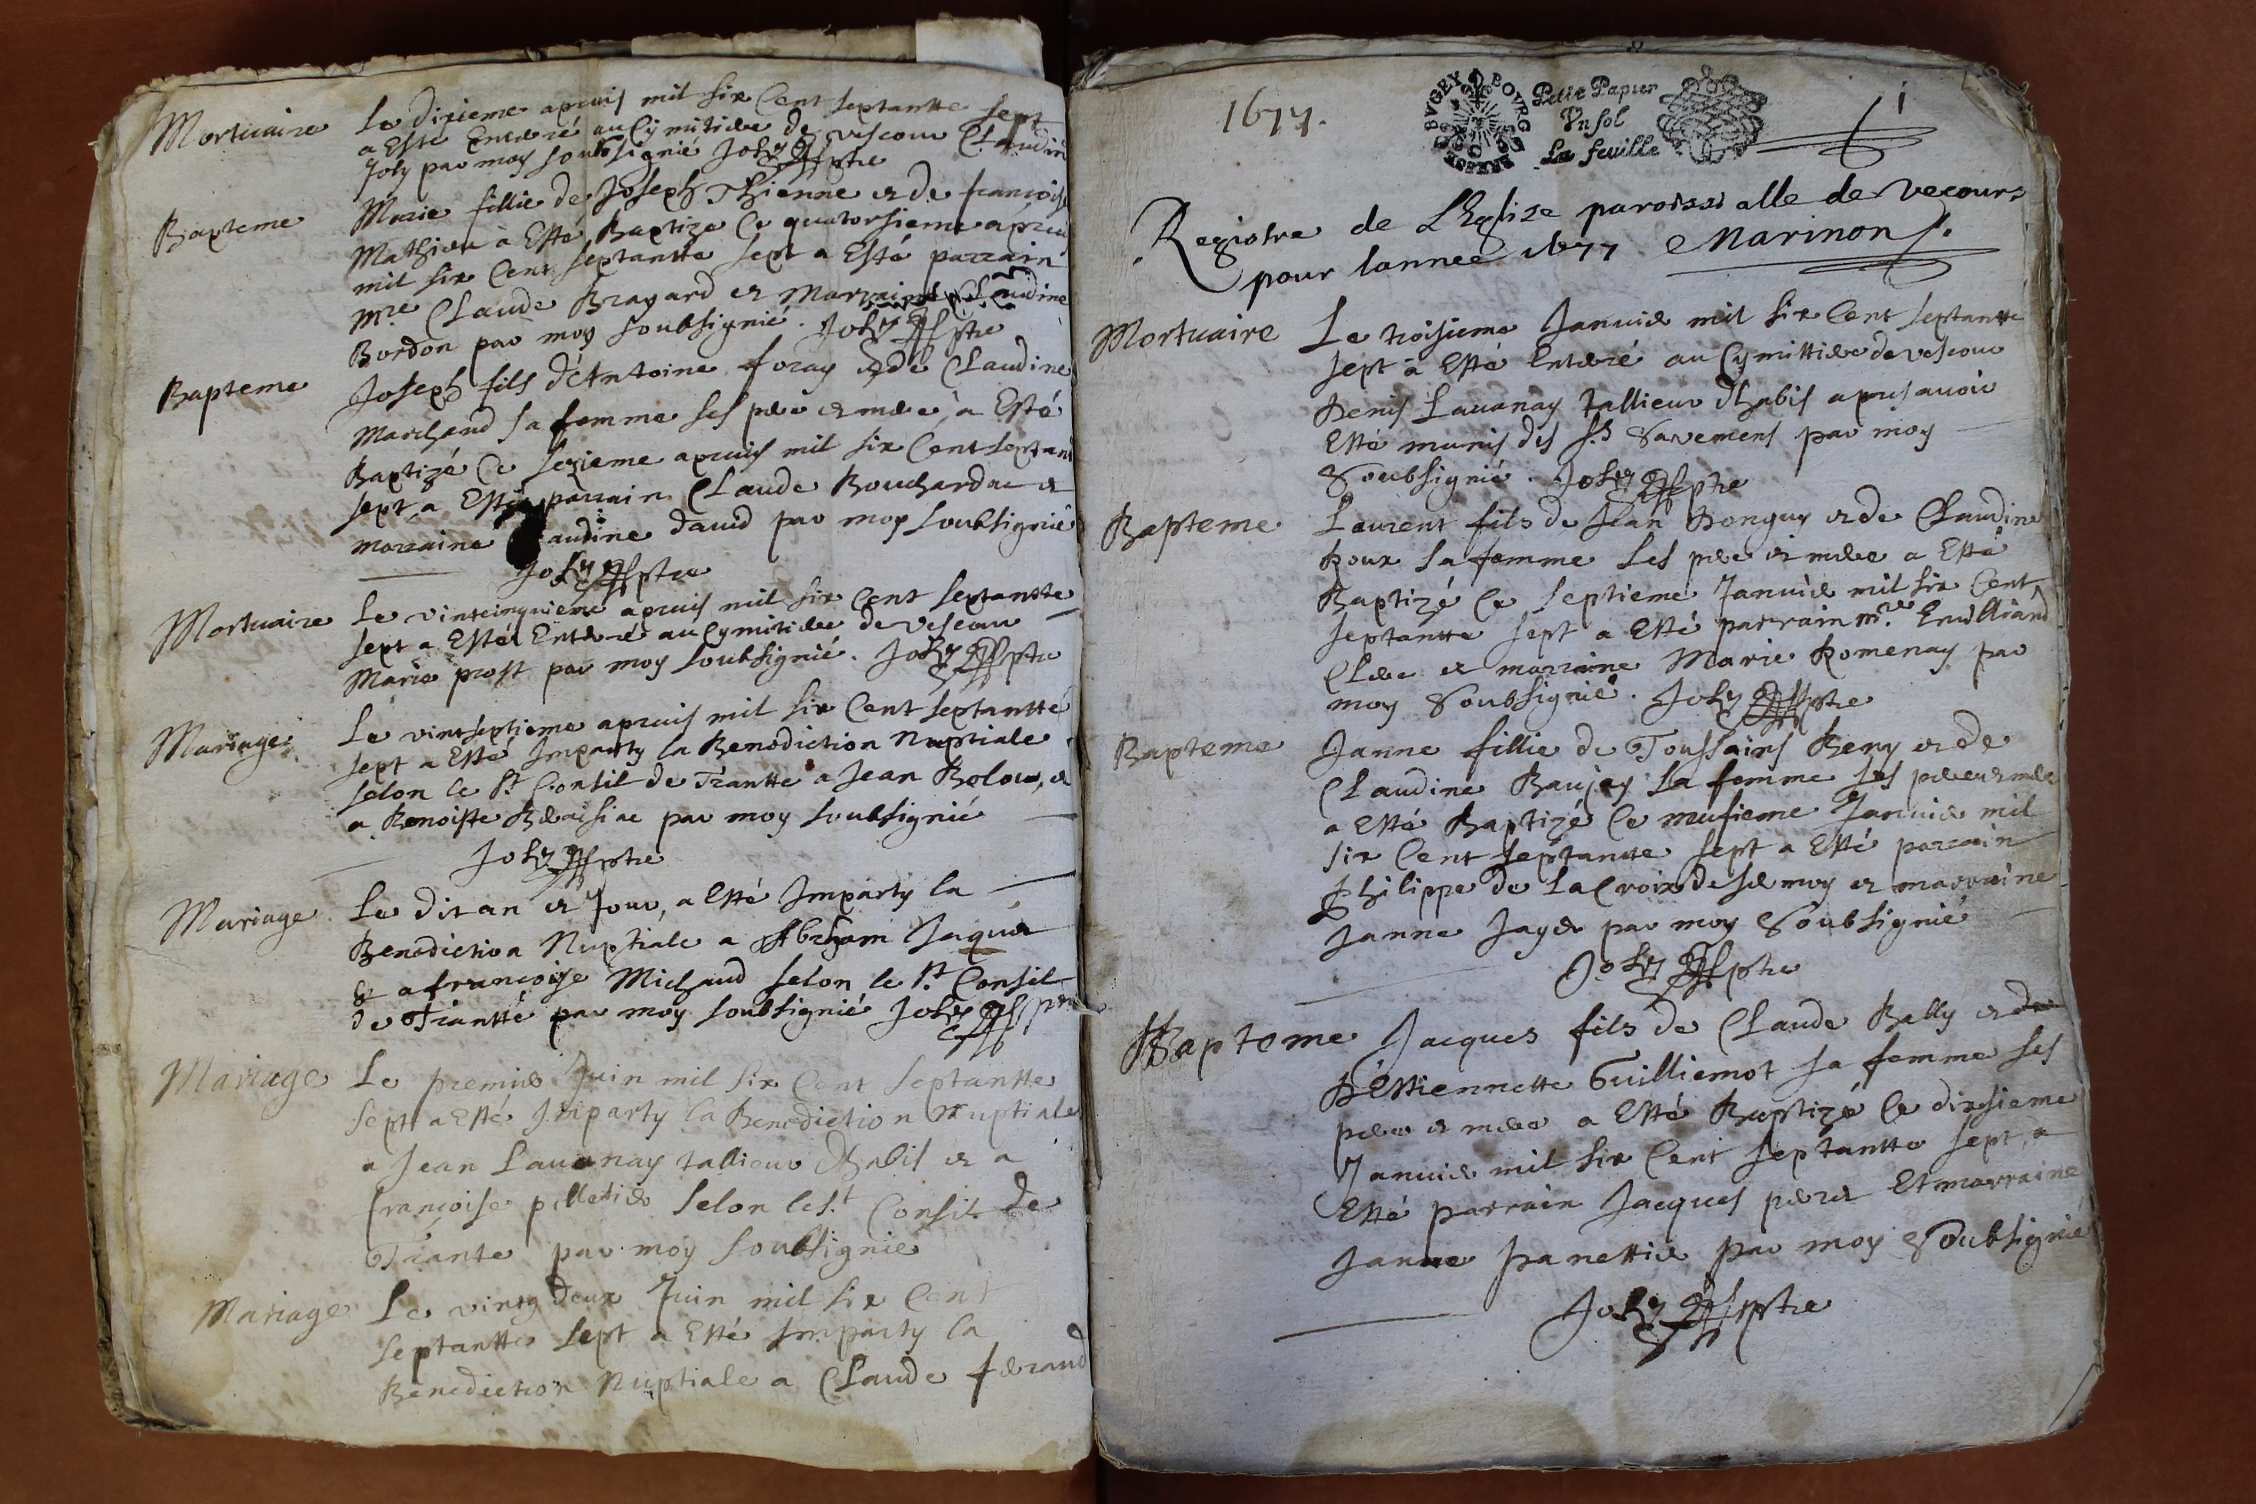 Mortuaire
Le dixieme apvris mil six Cent septantte sept
a Esté Enterré au Cymitiere de vescour Claudine
Joly par moy soubsignié Joly ptre
Bapteme
Marie fillie de Joseph Thienne et de francoise
Mathieu à Esté Baptize Ce quatorsieme apvris
mil six Cent septantte sept a Esté parrain
mre Claude Brayard et Marraine Claudine
Bordon par moy soubsignié. Joly ptre
Bapteme
Joseph fils d'Antoine foray et de Claudine
Marchand sa femme ses pere et mere, a Esté
Baptizé Ce sezieme apvris mil six Cent septant
sept a Esté parrain Claude Bouchardac et
marraine Claudine david par moy soubsignié
Joly ptre
Mortuaire
Le vintcinquieme apvris mil six Cent septantte
sept a Esté Enterré au Cymitiere de vescour
Marie prost par moy soubsignié. Joly ptre
Mariage
Le vintseptieme apvris mil six Cent septantte
sept a Esté Imparty la Benediction Nuptiale
selon le st Consil de Trantte a Jean Bolour, et
a Benoiste par moy soubsignié
Joly ptre
Mariage
Le dit an et Jour, a Esté Imparty la
Benediction Nuptiale a Abrham Jaquer
& a francoise Michaud selon le st Consil
de Trantte par moy soubsignié Joly ptre
Mariage
Le premier Juin mil six Cent septantte
sept a Esté Imparty la Benediction Nuptiale
a Jean Lauanay tallieur dhabit et a
francoise pelletier selon le st Consil de
Trante par moy soubsignié
Mariage
Le vingt deux Juin mil six Cent
septantte sept a Esté Imparty la
Benediction Nuptiale a Claude ferand
1677.
BVGEY BOVRG BRESSE
Petit Papier
Vn sol
La feuille
1
Registre de LEglise paroissialle de vecours
pour lannee 1677 Marinon
Mortuaire
Le troisieme Januier mil six Cent septantte
sept à Esté Enterré au Cymittiere de vescour
Denis Lauanay tallieur dhabis apres auoir
Esté munis des ss Sacremens par moy
Soubsignié. Joly ptre
Bapteme
Laurent fils de Jean Donguy et de Claudine
Roux sa femme ses pere et mere a Esté
Baptizé Ce septieme Januier mil six Cent
septantte sept a Esté parrain mre Enilliand
Clere et marraine Marie Romenay par
moy Soubsignié. Joly ptre
Bapteme
Janne fillie de Toussains Reny et de
Claudine Baujey sa femme ses pere et mere
a Esté Baptizé Ce neufieme Januier mil
six Cent septantte sept a Esté parrain
Philippe de La Croix de sermoy et marraine
Janne Jayer par moy Soubsignié
Joly ptre
Bapteme
Jacques fils de Claude Bally et de
D'Estiennette Guilliemot sa femme ses
pere et mere a Esté Baptizé Ce dixsieme
Januier mil six Cent septantte sept, a
Esté parrain Jacques perret Et marraine
Janne panettier par moy Soubsignié
Joly ptre